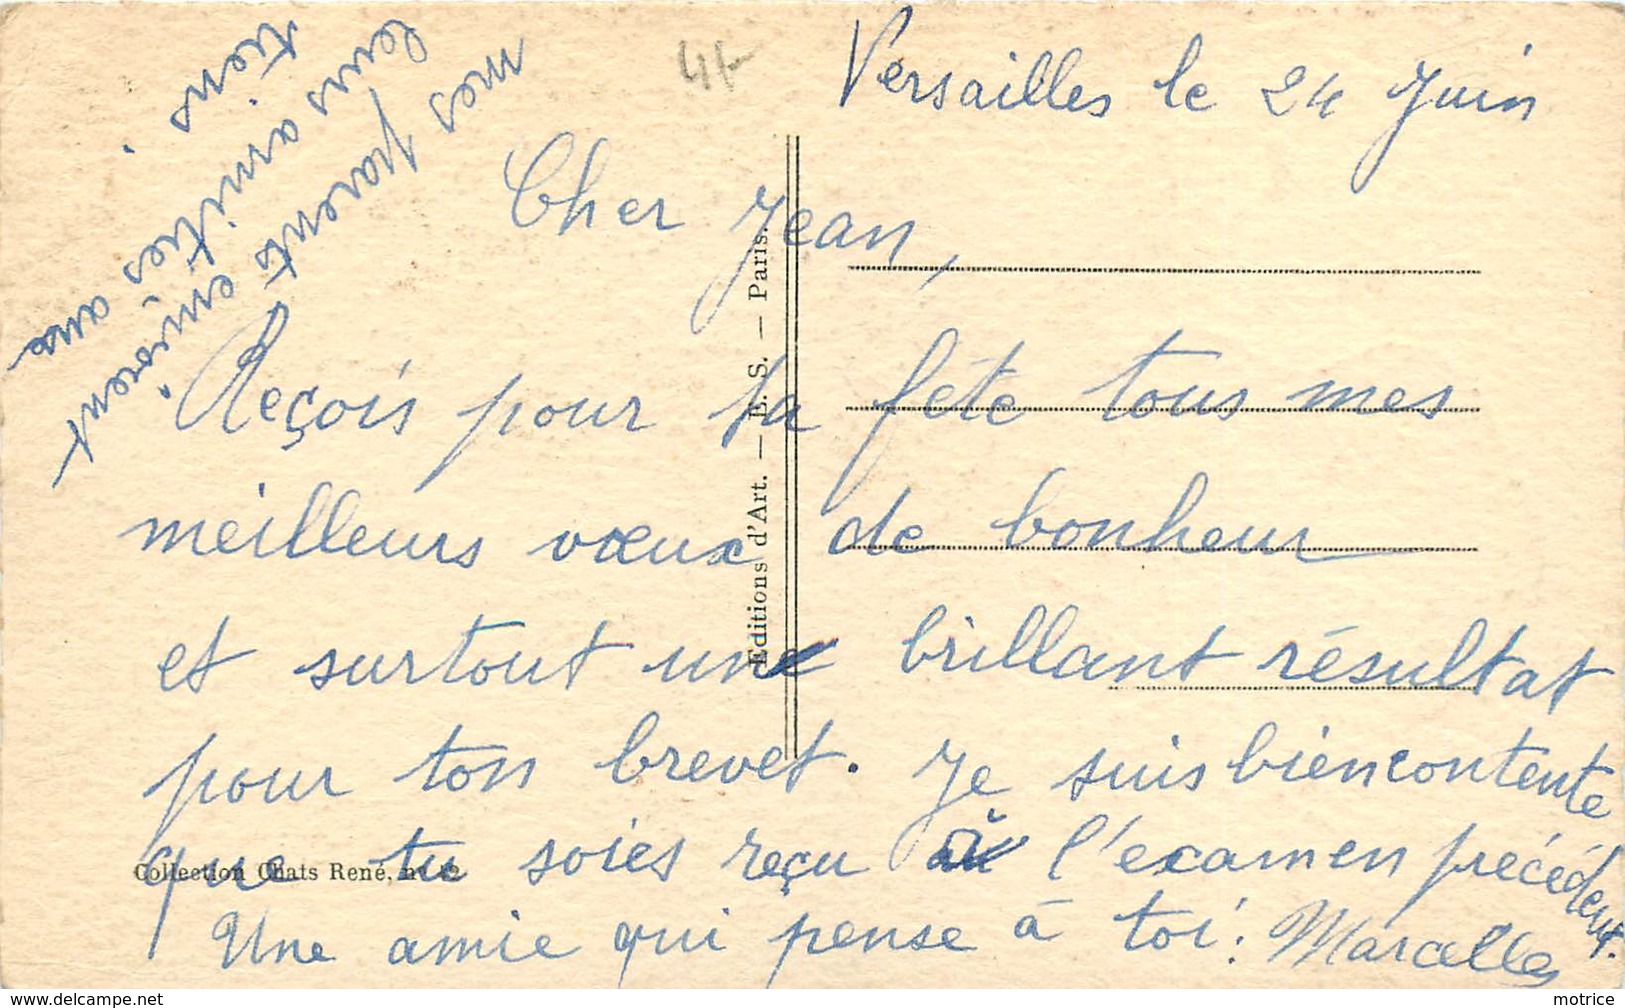 Versailles le 24 Juin
4f
Cher Jean,
Reçois pour ta fête tous mes
meilleurs vœux de bonheur
et surtout un brillant résultat
pour ton brevet. Je suis bien contente
que tu soies reçu à l'examen précédent.
Une amie qui pense à toi. Marcelle
mes parents envoient
leurs amitiés aux
tiens.
Editions d'Art. — E. S. — Paris.
Collection Chats René, n°
delcampe.net
motrice